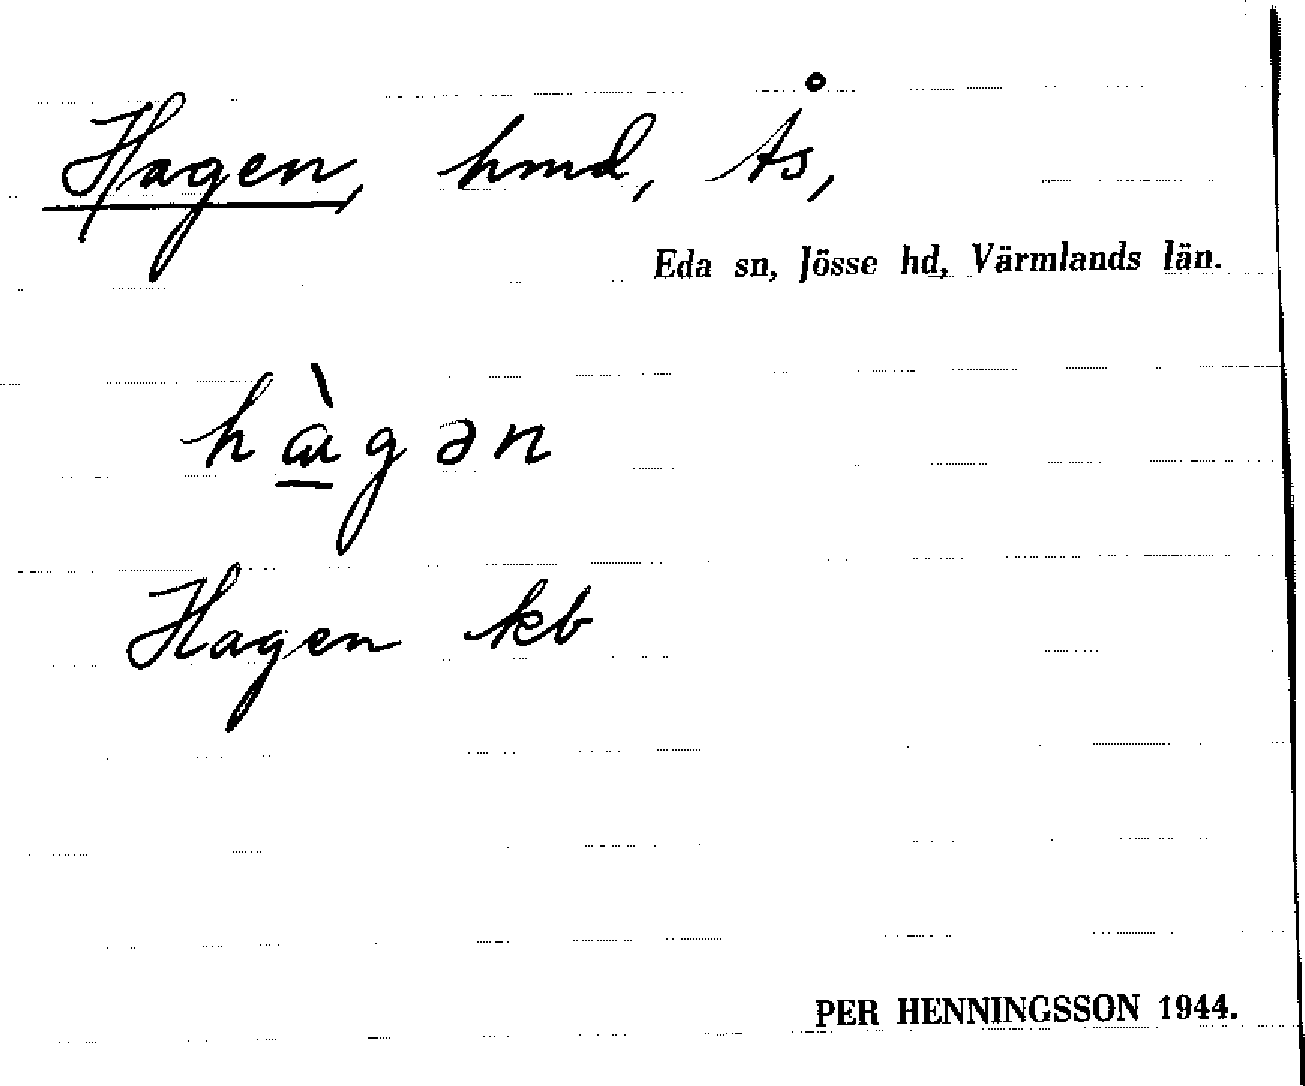 Hagen, hmd, Ås,
Eda sn, Jösse hd, Värmlands län.
hɑ̱̀gən
Hagen kb
PER HENNINGSSON 1944.